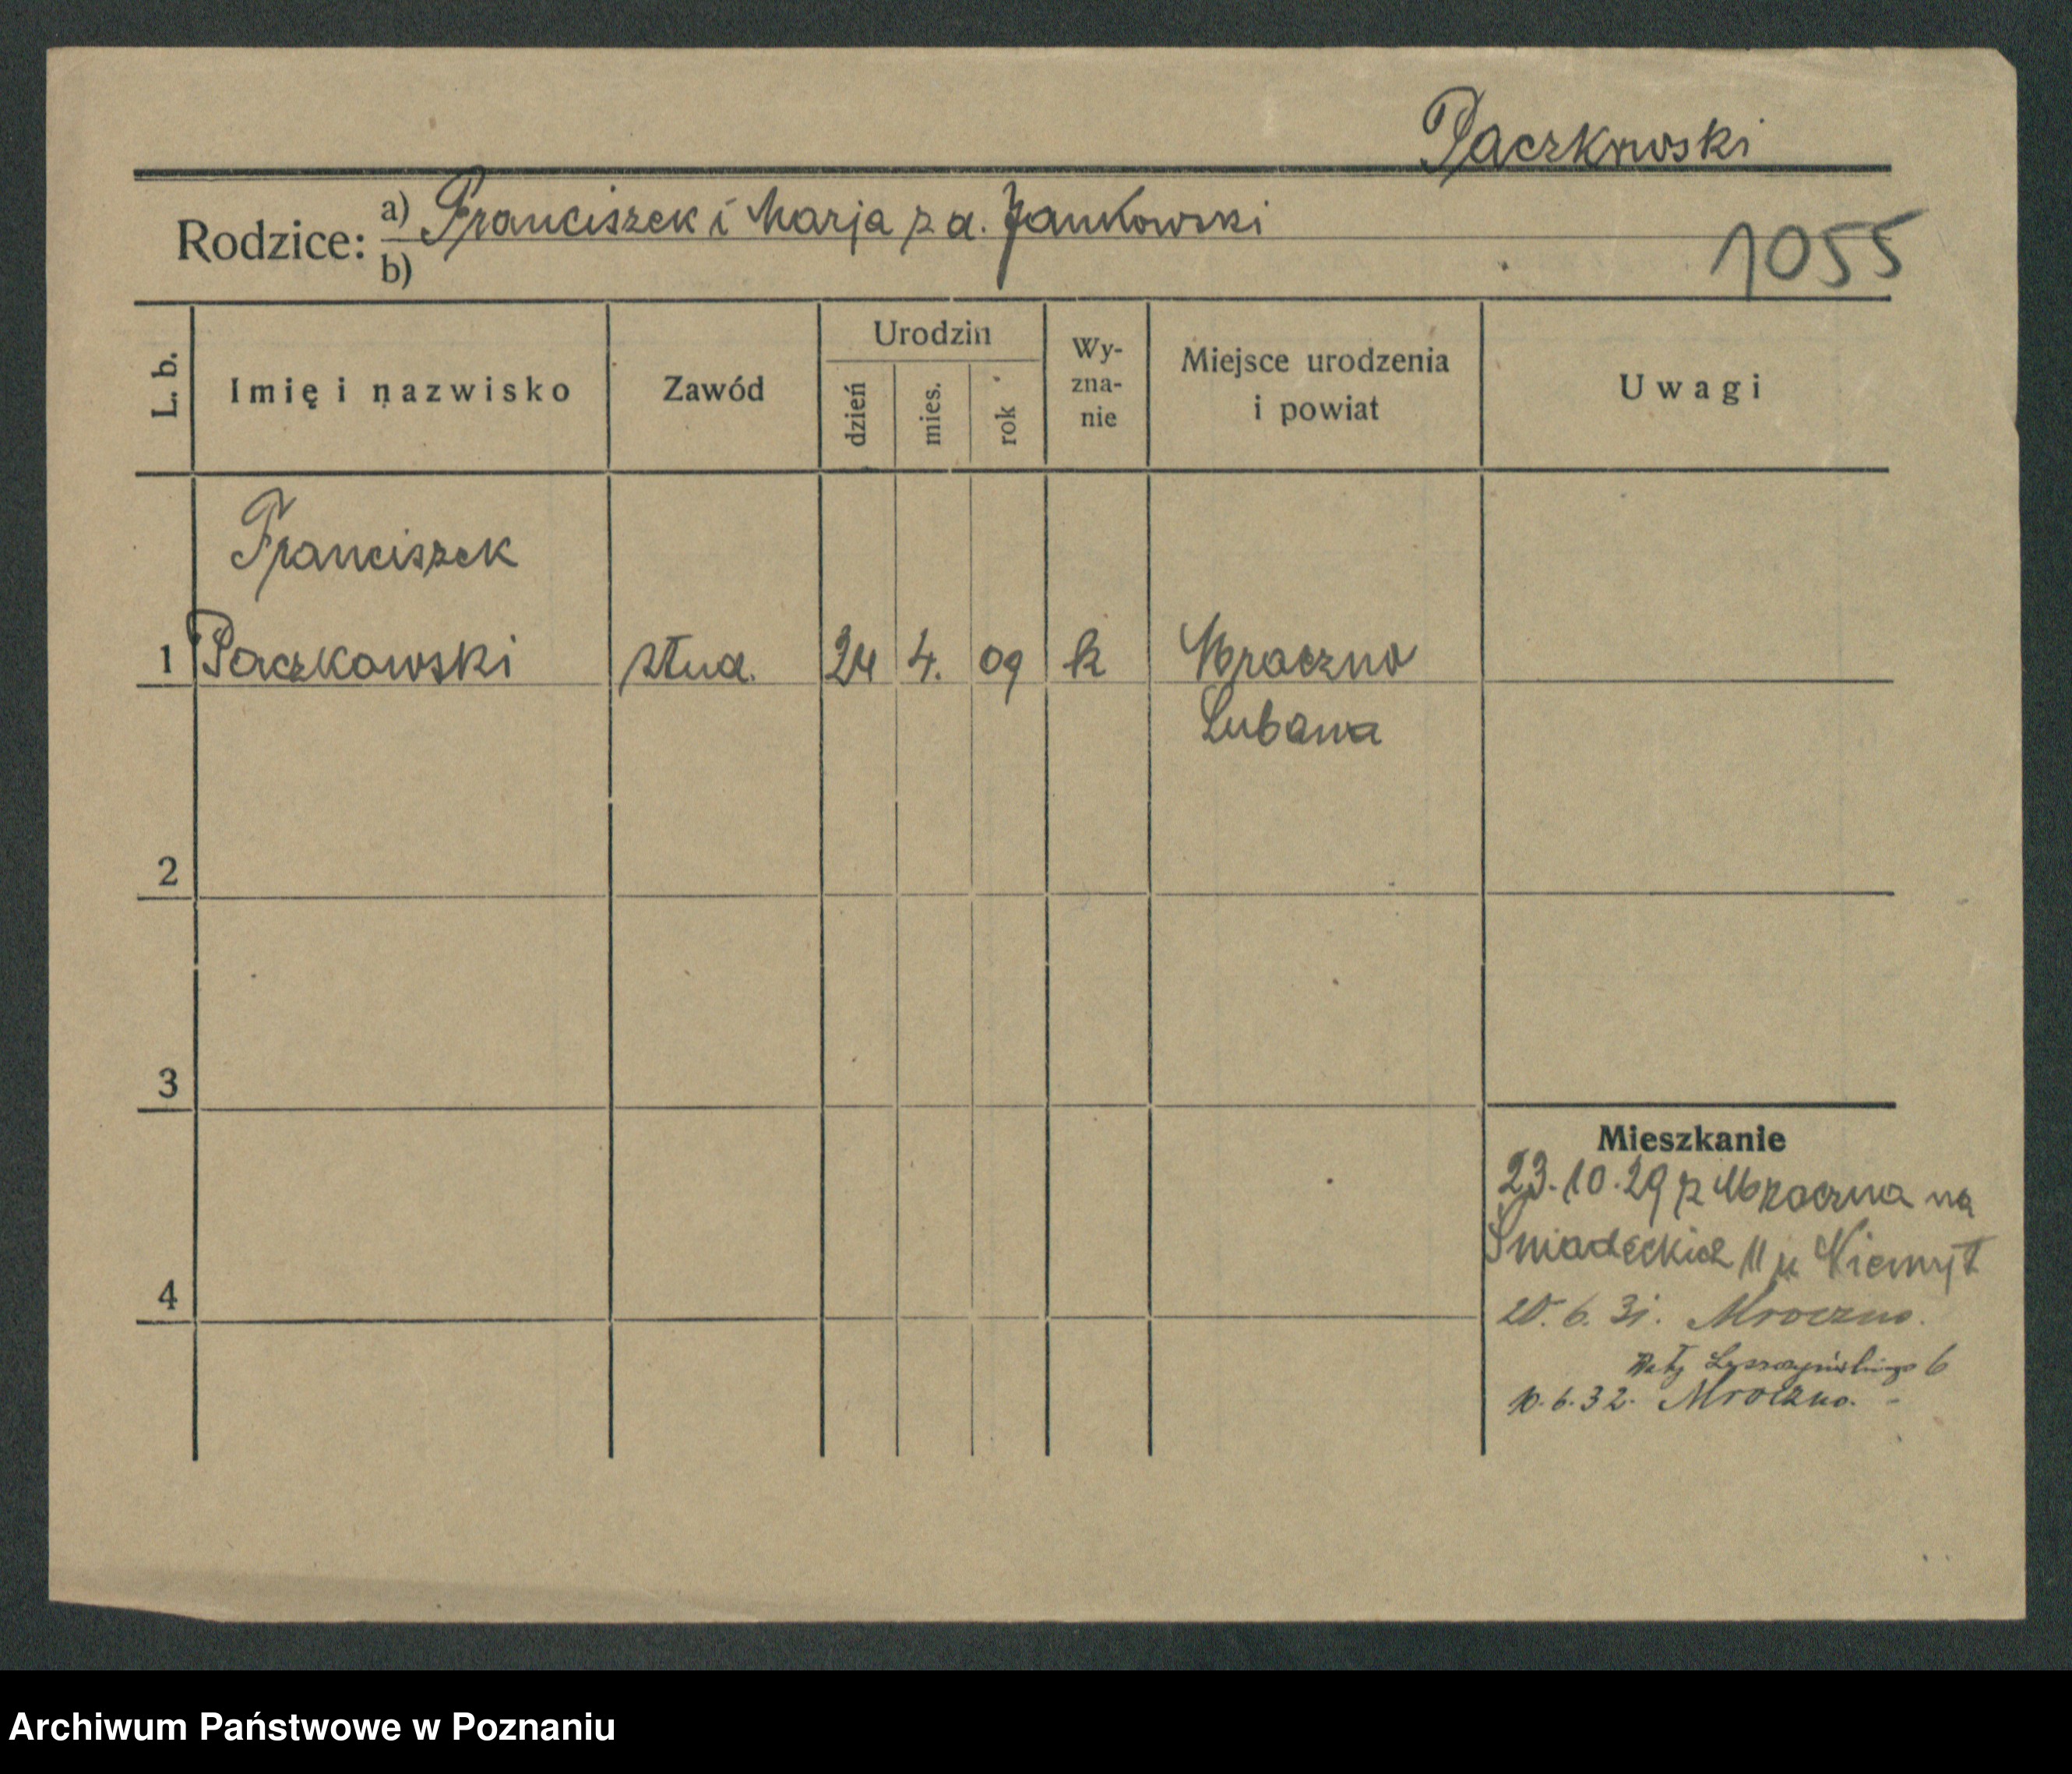 Paczkowski
Rodzice: a) Franciszek i Marja z d. Jankowski
b)
1055
L. b. Imię i nazwisko Zawód Urodzin dzień mies. rok Wy-zna-nie Miejsce urodzenia i powiat Uwagi
Franciszek
1 Paczkowski stud. 24 4. 09 k Mroczno
Lubawa
2
3
Mieszkanie
23.10.29 z Mroczna na
Śniadeckich 11 u
4
20. 6. 31. Mroczno.
6
10. 6. 32. Mroczno. -
Archiwum Państwowe w Poznaniu